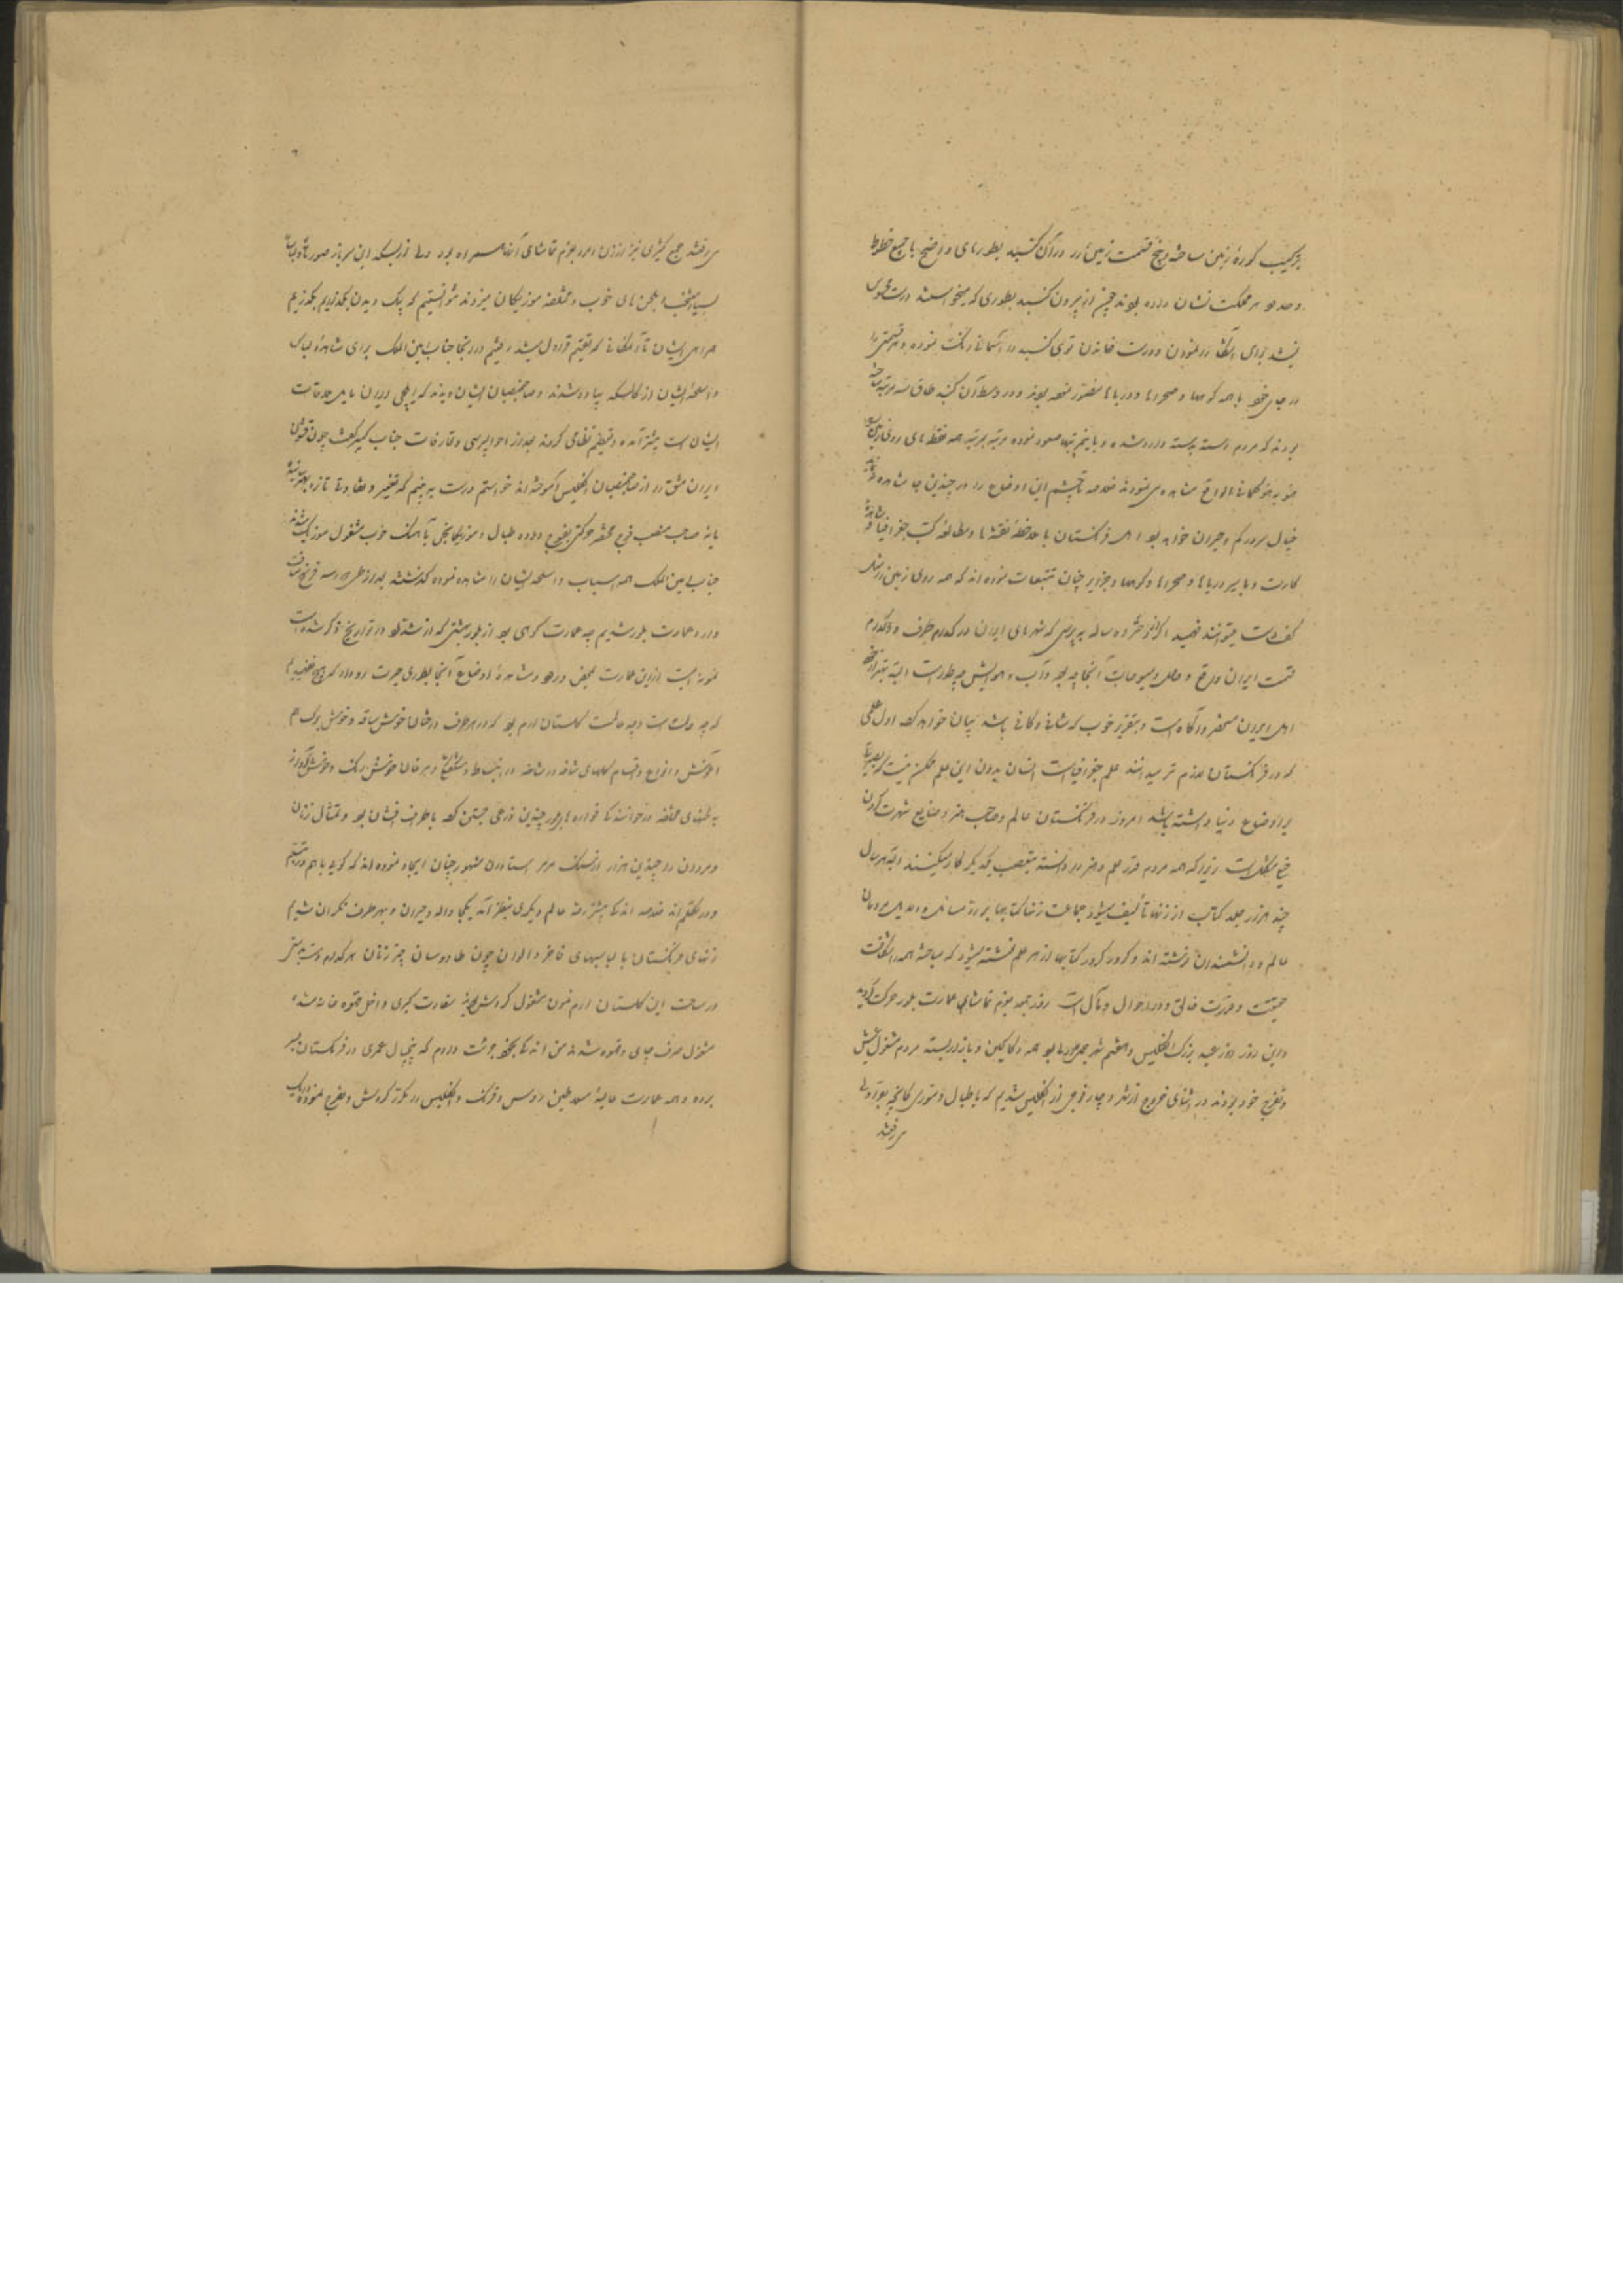 بترکیب کورهٔ زمین ساخته و پنج قسمت زمین را در آن کنبد بطورهای واضح با جمیع خطوط
و حدود هر مملکت نشان داده بودند چیز از بیرون کنبد بطوری که میخواستند درست
نیشد برای نمودن و درست توی کنبد را رنک نموده و هر قسمتی را
در جای خود با همه کوهها و صحراها و دریاها نموده بودند و در وسط آن کنبد طاق سه مرتبه ساخته
بودند که مردم دسته بدسته وارد شده و باین مرتبها صعود نموده مرتبه بمرتبه همه نقطهای روی زمین
مشاهده می‌نمودند خلاصه تا بچشم این اوضاع را در چندین جا مشاهده
خیال سردرکم و حیران خواهد بود اهل فرنکستان با ملاحظه نقشها و مطالعه کتب جغرافیا و
کارت و با سیر دریاها و صحراها و کوهها و جزایر چنان تتبعات نموده‌اند که همه روی زمین را مثل
کف دست میتوانند فهمید اکر از دختر ده ساله بپرسی که شهرهای ایران در کدام طرف و کدام
قسمت ایران واقع و آنجا چه بود و آب و هوایش چه طور است البته بهتر از
اهل ایران مستحضر و آکاه است و بتقریر خوب بیان خواهد کرد اول علمی
که در فرنکستان لازم تر میدانند علم جغرافیاست انسان بدون این علم ممکن نیست که
بر اوضاع دنیا داشته باشد امروز در فرنکستان عالم و صاحب هنر و صنایع شهرت کردن
خیلی مشکل است زیرا که همه مردم قدر علم و هنر را دانسته بتعصب یکدیکر کار میکنند البته هر سال
چند هزار جلد کتاب از زنها تألیف میشود جماعت زنها کتابها بر رد مسائل و دلایل مردمان
عالم و دانشمندان نوشته‌اند و کرور کرور کتابها از هر علم نوشته میشود که مباحثه همه در
حقیقت و قدرت خالق و در احوال و مآل است روز جمعه بعزم تماشای عمارت بلور حرکت کردید
و این روز روز عید بزرک انکلیس و بود همه دکاکین و بازار بسته مردم مشغول عیش
و تفرج خود بودند در اثنای خروج از شهر دچار فوجی از انکلیس شدیم که با طبال و
میرفتند
میرفتند جمع کثیری نیز از زن و مرد بعزم تماشای آنها همراه بود از بسکه این سرباز
بسیار خوب و مختلفه موزیکان میزدند نتوانستیم که بی دیدن بکذاریم بکذریم
همراهی ایشان تا مکانی که تقسیم قراول میشد رفتیم در اینجا جناب امین الملک برای مشاهدهٔ لباس
و اسلحهٔ ایشان از کالسکه پیاده شدند و صاحبمنصبان ایشان دیدند که ایلچی ایران مایل ملاقات
ایشان است پیشتر آمده و تعظیم نظامی کردند بعد از احوالپرسی و تعارفات جناب کفت چون قشون
ایران مشق را از صاحبمنصبان انکلیس آموخته‌اند خواستم درست ببینم که تغییر و تفاوتی تازه
یا نه صاحب منصب فوج مختصر حرکتی بفوج داده طبال و موزیکانچی با آهنک خوب مشغول موزیک شدند
جناب امین الملک همه اسباب و اسلحهٔ ایشان را مشاهده نموده کذشتند بعد از طی راه سه فرسخ
وارد عمارت بلور شدیم چه عمارت کوهی بود از بلور بهشتی که از شداد در تواریخ ذکر شده است
نمونه ایست از این عمارت بمحض ورود و مشاهدهٔ اوضاع آنجا بطوری حیرت رو داد که هیچ نفهمیدیم
که چه دولت است و چه حالت کلستان ارم بود که در هر طرف درختان خوش ساقه و خوش برک
و انواع و اقسام کلهای شاخه در شاخه در انبساط و و مرغان خوش رنک و خوش آواز
بنغمهای مختلفه در خوانندکی فواره‌ها چندین ذرعی جستن کرده باطراف افشان بود و تمثال زنان
و مردان را چندین هزار از سنک مرمر استادان مشهور چنان ایجاد نموده‌اند که کویا با هم در تبسم
و در تکلم‌اند خلاصه اندکی پیشتر رفته عالم دیکری بنظر آمد یکجا واله و حیران و بهر طرف نکران شدیم
زنهای فرنکستان با لباسهای فاخر و الوان چون طاوسان چتر زنان هر کدام دست بدستی
در ساحت این کلستان ارم نمون مشغول کردش بودند سفارت کبری داخل قهوه خانه شده
مشغول صرف چای و قهوه شدند من اندکی بخود جرئت دادم که پنجسال عمری در فرنکستان بسر
برده و همه عمارت عالیهٔ سلاطین روس و فرنک و انکلیس را مکرر کردش و تفرج نموده